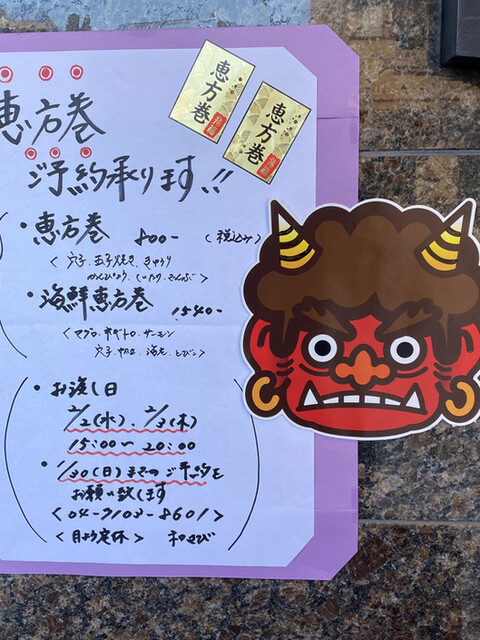 恵方巻
恵方巻
恵方巻
ご予約承ります!!
・恵方巻 800- (税込み)
<穴子、玉子焼き、きゅうり
かんぴょう、しいたけ、でんぶ>
・海鮮恵方巻 1540-
<マグロ、ネギトロ、サーモン
穴子、玉子、海老、とびこ>
・お渡し日
2/2(水)、2/3(木)
15:00〜20:00
・1/30(日)までのご予約を
お願い致します
<04-7103-8601>
<月よう定休> わさび